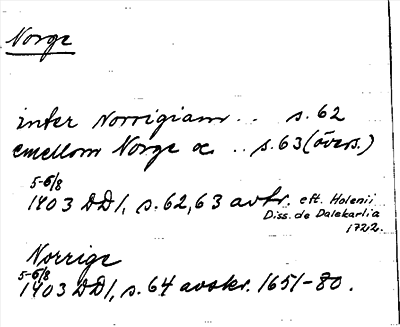 Norge
inter Norrigiam .. s. 62
emellom Norge oc .. s. 63 (övers.)
5-6/8
1403 DD 1, s. 62, 63 avtr. eft. Holenii
Diss. de Dalekarlia
1722.
Norrige
5-6/8
1403 DD 1, s. 64 avskr. 1651-80.